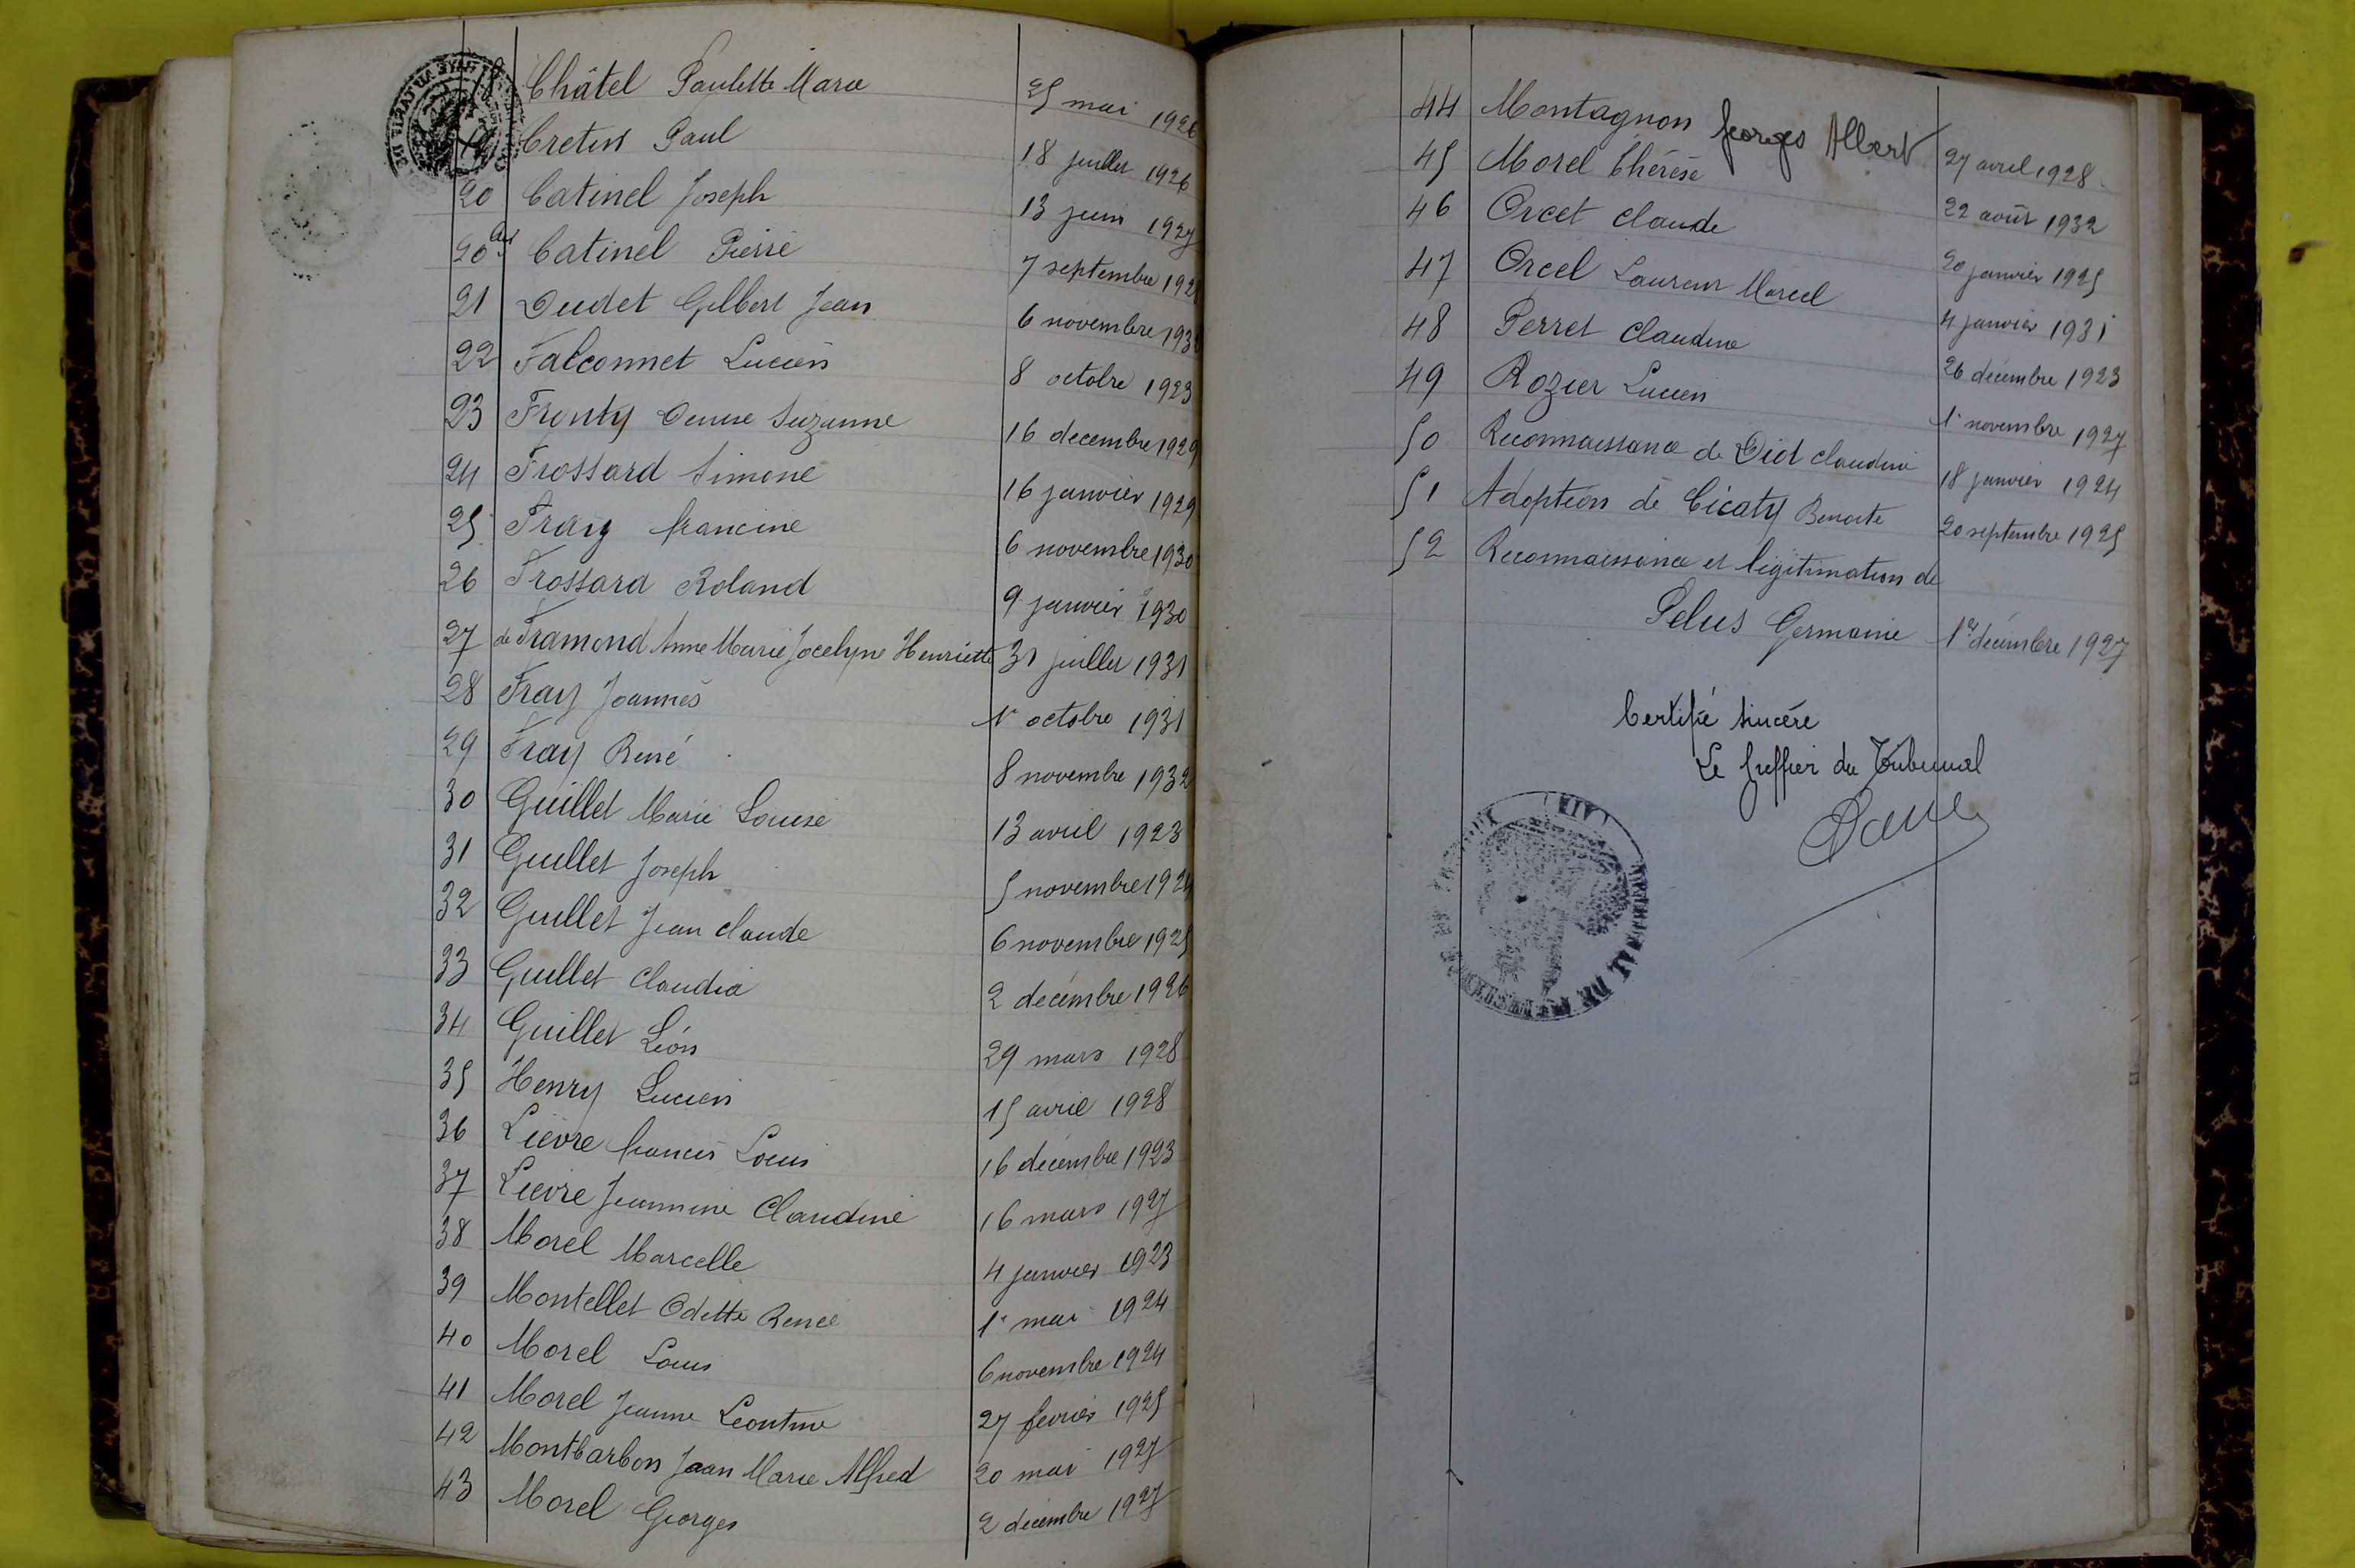 18 Châtel Paulette Marie 25 mai 1926
19 Cretin Paul 18 juillet 1926
20 Catinel Joseph 13 juin 1927
20 bis Catinel Pierre 7 septembre
21 Oudet Gilbert Jean 6 novembre
22 Falconnet Lucien 8 octobre 1923
23 Fronty Denise Suzanne 16 décembre 1929
24 Frossard Simone 16 janvier 1929
25 Fray Francine 6 novembre 1930
26 Frossard Roland 9 janvier 1930
27 de Framond Anne Marie Jocelyne Henriette 31 juillet 1931
28 Fray Joannès 1r octobre 1931
29 Fray René 8 novembre 1932
30 Guillet Marie Louise 13 avril 1923
31 Guillet Joseph 5 novembre 1924
32 Guillet Jean Claude 6 novembre 1925
33 Guillet Claudia 2 décembre 1926
34 Guillet Léon 29 mars 1928
35 Henry Lucien 15 avril 1928
36 Lièvre Francis Louis 16 décembre 1923
37 Lièvre Jeannine Claudine 16 mars 1927
38 Morel Marcelle 4 janvier 1923
39 Montellet Odette Renée 1r mai 1924
40 Morel Louis 6 novembre 1924
41 Morel Jeanne Léontine 27 février 1925
42 Montbarbon Jean Marie Alfred 20 mai 1927
43 Morel Georges 2 décembre 1927
44 Montagnon Georges Albert 27 avril 1928
45 Morel Thérèse 22 août 1932
46 Orcet Claude 20 janvier 1925
47 Orcel Laurent Marcel 4 janvier 1931
48 Perret Claudine 26 décembre 1923
49 Rozier Lucien 1r novembre 1927
50 Reconnaissance de Diot Claudine 18 janvier 1924
51 Adoption de Cicaty Benoite 20 septembre 1925
52 Reconnaissance et légitimation de
Pelus Germaine 1er décembre 1927
Certifié sincère
Le Greffier du Tribunal